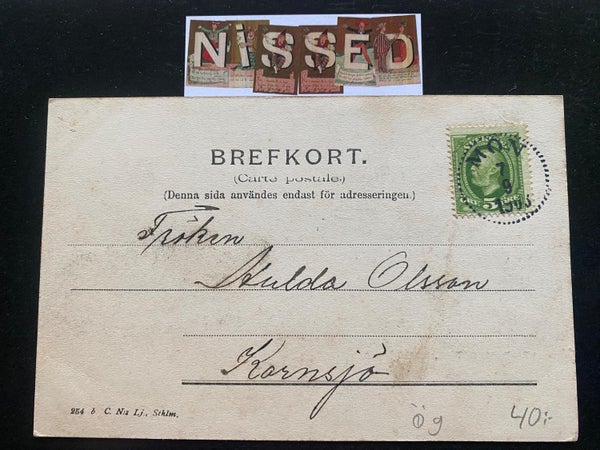 NiSSED
BREFKORT.
(Carte postale.)
(Denna sida användes endast för adresseringen.)
MON
7
9
1903
5
Fröken
Hulda Olsson
Kornsjö
254 b C. N:s Lj., Sthlm.
ög
40:-